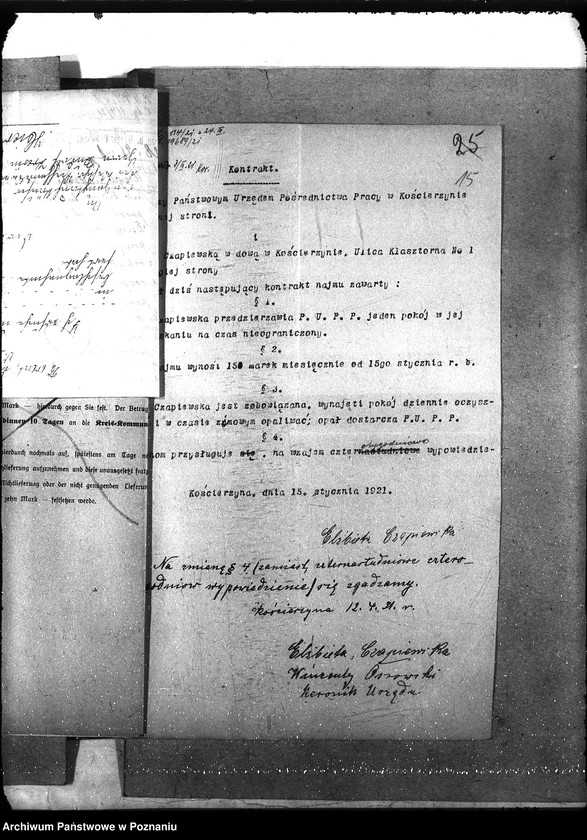 25
15
Kontrakt.
Państwowym Urzędem Pośrednictwa Pracy w Kościerzynie
ej stroni.
i
Czapiewską w dową w Kościerzynie, Ulica Klasztorna No 1
giej strony
dziś następujący kontrakt najmu zawarty :
§ 1.
zapiewska przedzierzawia P. U. P. P. jeden pokój w jej
kaniu na czas nieograniczony.
§ 2.
ajmu wynosi 150 marek miesięcznie od 15go stycznia r. b.
§ 3.
Czapiewska jest zobowiązana, wynajęti pokój dziennie oczysz-
i w czasie zimowym opaliwać; opał dostarcza P.U. P. P.
§ 4.
nom przysługuje się , na wzajem czter wypowiedzie-
Kościerzyna, dnia 15. stycznia 1921.
Elżbieta Czapiewska
Na zmianę § 4 (zamiast czternastudniowe cztero-
odniow wypowiedzienie) się zgadzamy.
Kościerzyna 12. 4. 21. r.
Elżbieta Czapiewska
Wincenty Ossowski
kierownik Urzędu
Mark — hierdurch gegen Sie fest. Der Betrag
binnen 10 Tagen an die Kreis-Kommun
ierdurch nochmals auf, spätestens am Tage
lieferung aufzunehmen und diese unausgesetzt fortz
Nichtlieferung oder der nicht genügenden Lieferun
zehn Mark — festsetzen werde.
Archiwum Państwowe w Poznaniu